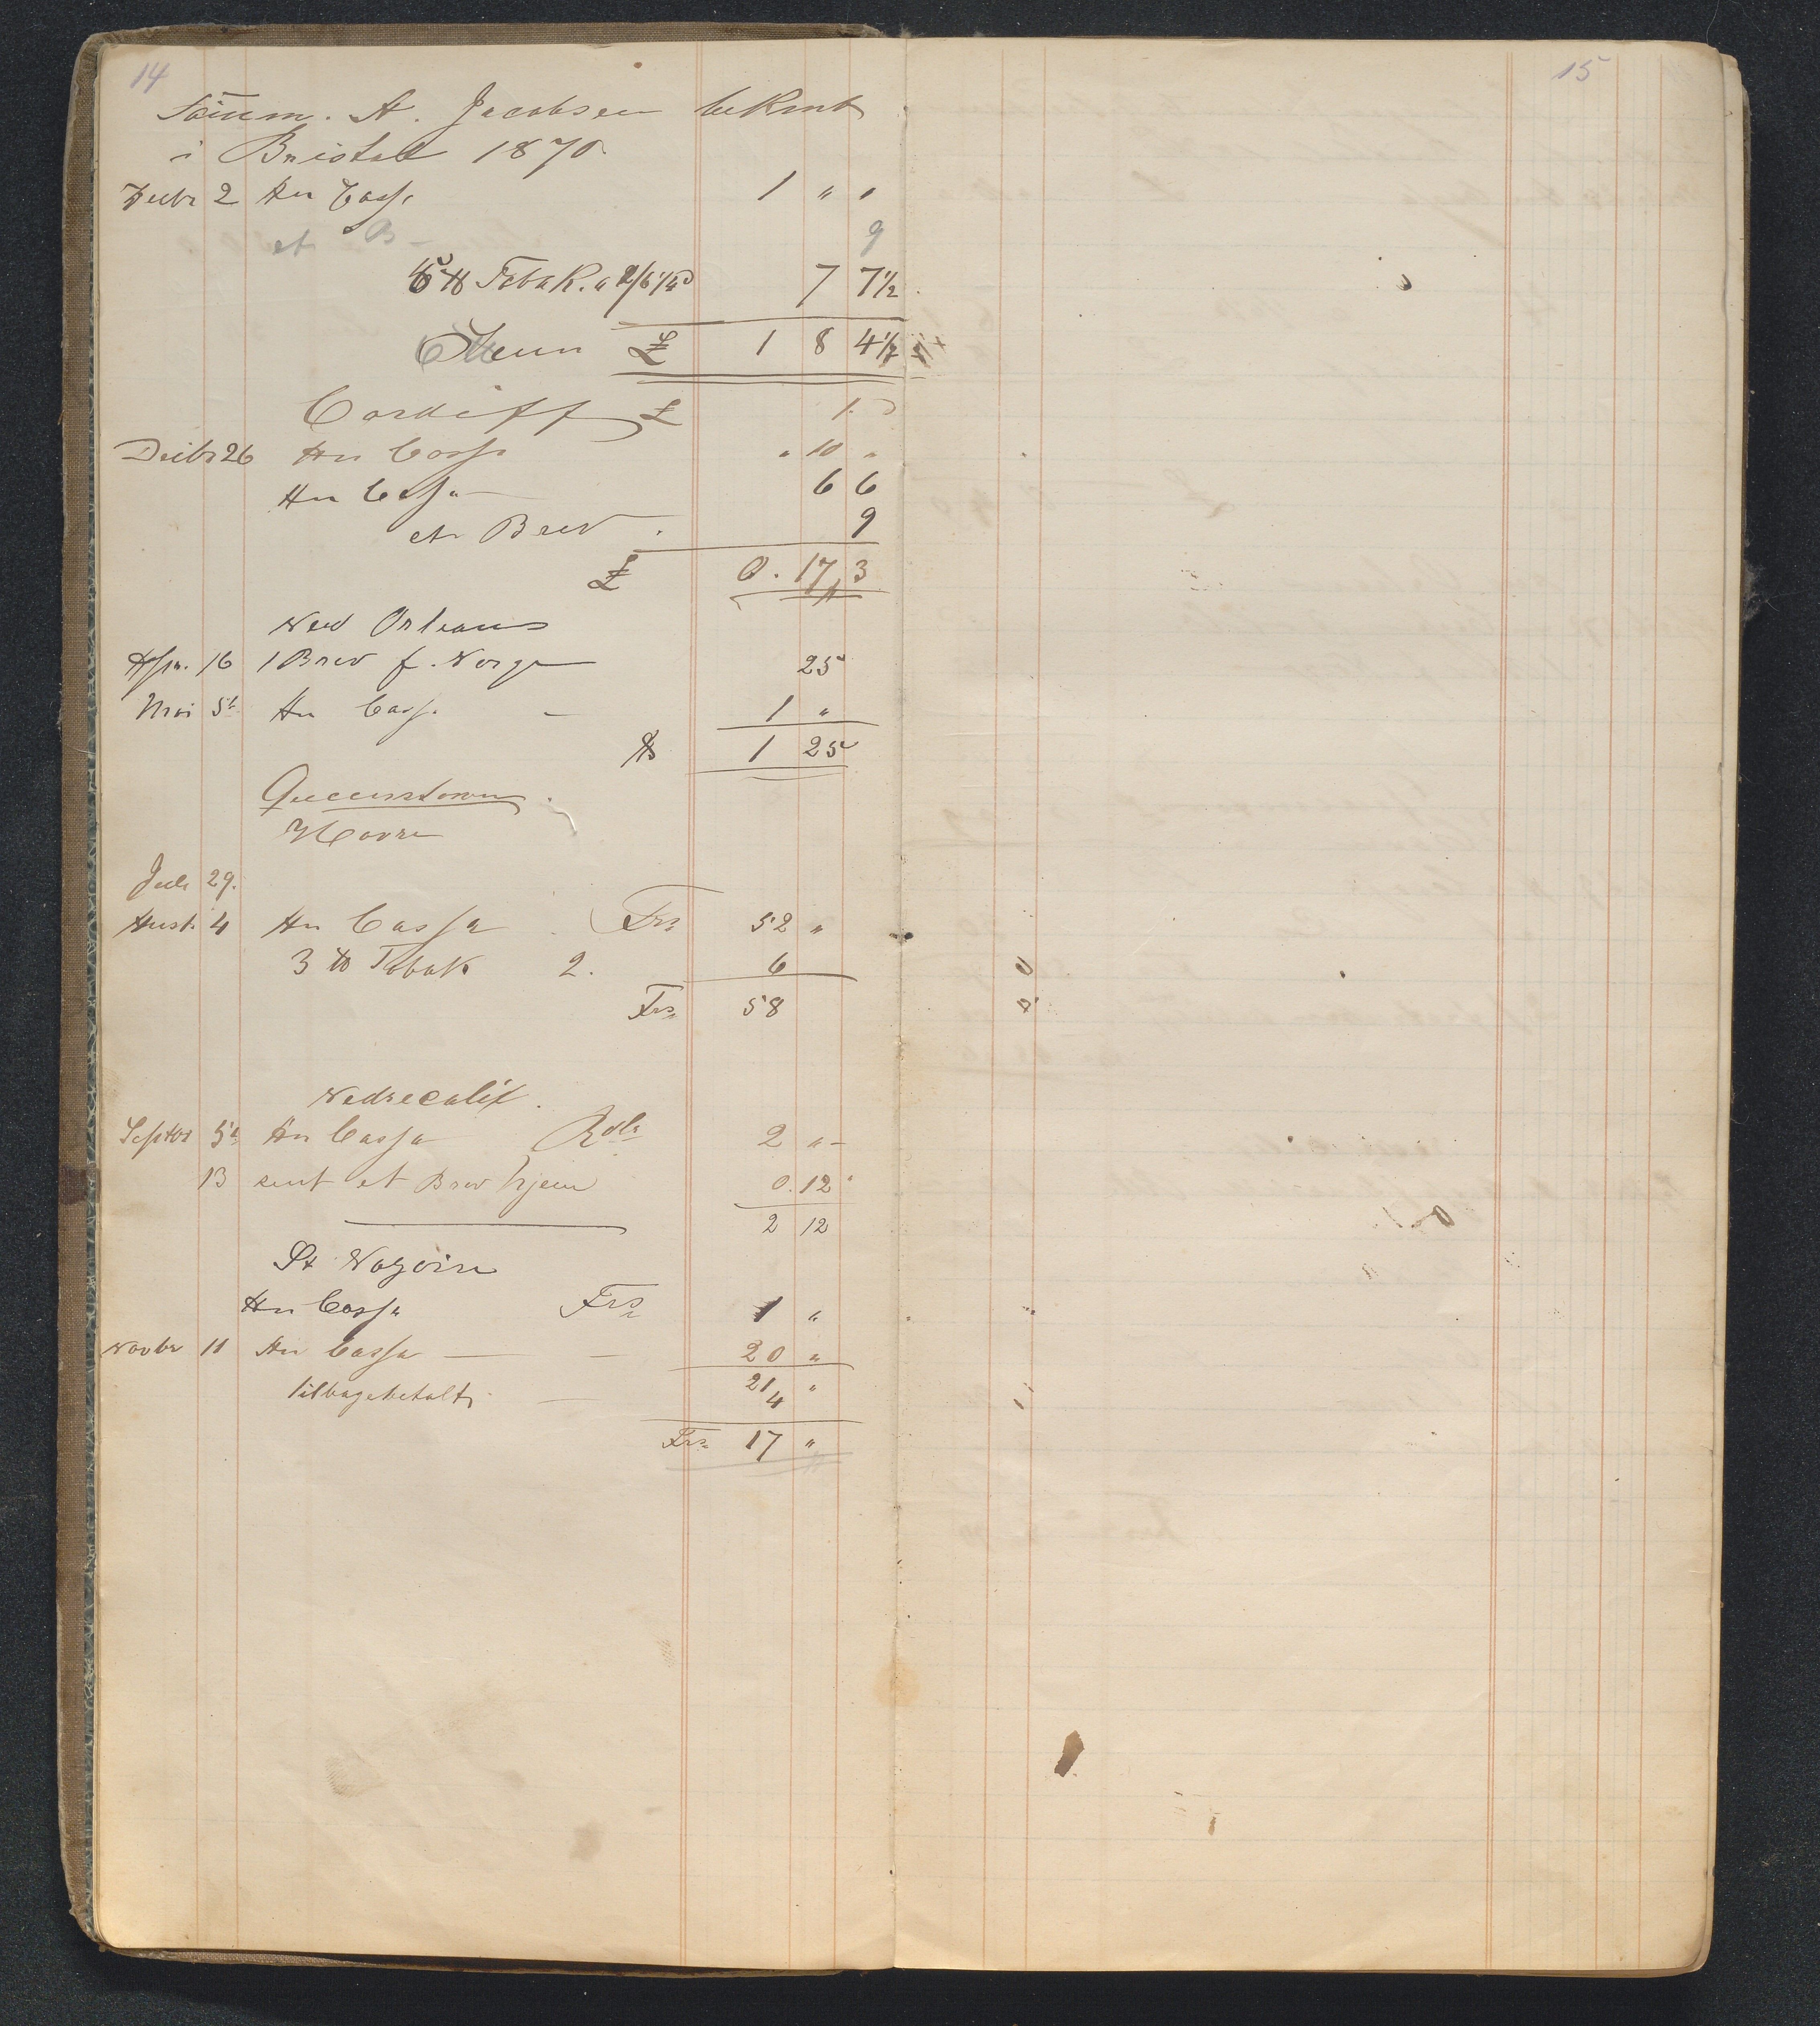 14
Tömm. A. Jacobsen bekomt
i Bristol 1870
Decbr 2 An Cassa 1 " "
et B— 9
5 ℔ Tobak. a 7 7½
£ 1 8 4½
Cardiff £
Decbr 26 An Cassa " 10 "
An Cassa — 6 6
et Brev . 9
£ 0. 17 3
New Orleans
Apr. 16 1 Brev f. Norge 25
Mai 5t An Cassa — 1 "
$ 1 25
Queenstown
Havre
Juli 29.
Aust. 4 An Cassa Frs 52 "
3 ℔ Tobak 2. 6
Frs 58
Nedrecalix.
Septbr 5t An Cassa Rdlr 2 " –
13 sent et Brev hjem 0. 12
2 12
St Nazaire
An Cassa Frs 1 "
Novbr 11 An Cassa — — 20 "
21 "
tilbagebetalt — 4
Frs 17 "
15